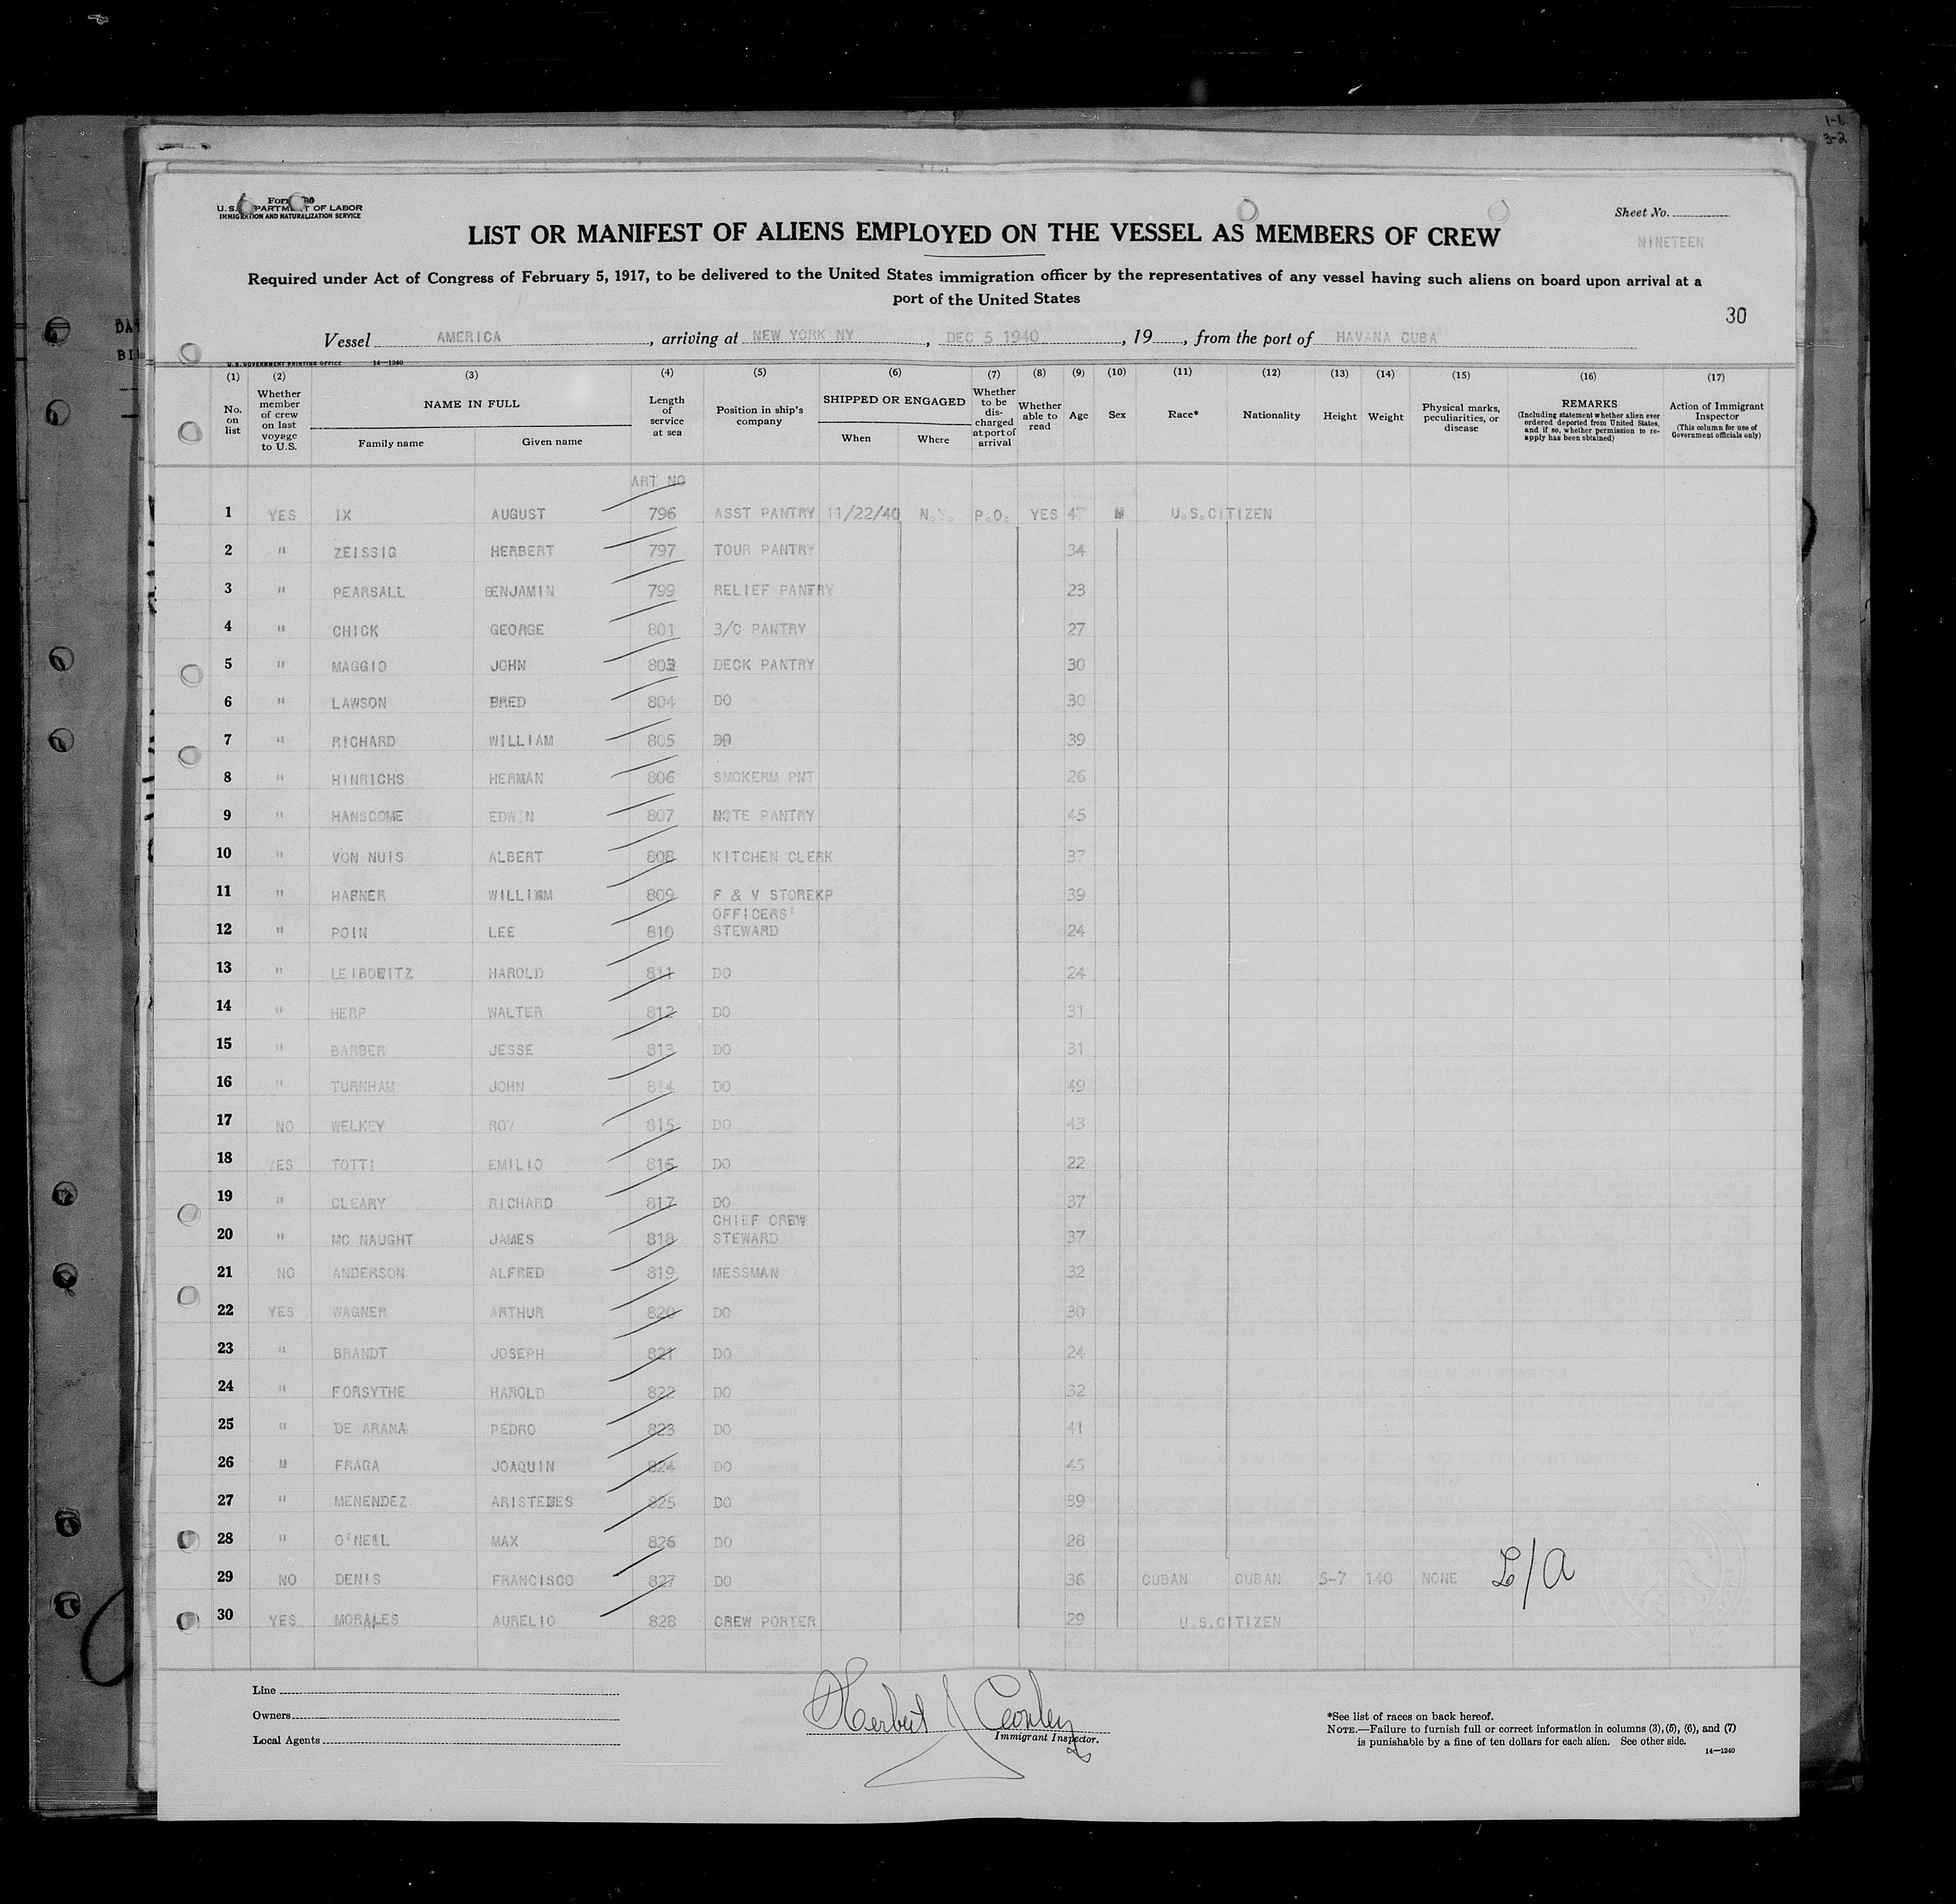 1-6
3-2
U.S. DEPARTMENT OF LABOR
IMMIGRATION AND NATURALIZATION SERVICE
Sheet No.
NINETEEN
LIST OR MANIFEST OF ALIENS EMPLOYED ON THE VESSEL AS MEMBERS OF CREW
Required under Act of Congress of February 5, 1917, to be delivered to the United States immigration officer by the representatives of any vessel having such aliens on board upon arrival at a
port of the United States
30
Vessel AMERICA, arriving at NEW YORK NY, DEC 5 1940, 19, from the port of HAVANA CUBA
U.S. GOVERNMENT PRINTING OFFICE 14—1240
(1) (2) (3) (4) (5) (6) (7) (8) (9) (10) (11) (12) (13) (14) (15) (16) (17)
No. on list
Whether member of crew on last voyage to U.S.
NAME IN FULL
Family name
Given name
Length of service at sea
Position in ship's company
SHIPPED OR ENGAGED
When
Where
Whether to be discharged at port of arrival
Whether able to read
Age
Sex
Race*
Nationality
Height
Weight
Physical marks, peculiarities, or disease
REMARKS
(Including statement whether alien ever ordered deported from United States, and if so, whether permission to re-apply has been obtained)
Action of Immigrant Inspector
(This column for use of Government officials only)
ART NO
1 YES IX AUGUST 796 ASST PANTRY 11/22/40 N.Y. P.O. YES 47 M U.S.CITIZEN
2 " ZEISSIG HERBERT 797 TOUR PANTRY 34
3 " PEARSALL BENJAMIN 799 RELIEF PANTRY 23
4 " CHICK GEORGE 801 3/C PANTRY 27
5 " MAGGIO JOHN 803 DECK PANTRY 30
6 " LAWSON 804 DO 30
7 " RICHARD WILLIAM 805 DO 39
8 " HINRICHS HERMAN 806 SMOKERM PNT 26
9 " HANSCOME EDWIN 807 NOTE PANTRY 45
10 " VON NUIS ALBERT 808 KITCHEN CLERK 37
11 " WILLIAM 809 F & V STOREKP 39
12 " POIN LEE 810 OFFICERS' STEWARD 24
13 " LEIBOWITZ HAROLD 811 DO 24
14 " HERP WALTER 812 DO 31
15 " BARBER JESSE 813 DO 31
16 " TURNHAM JOHN 814 DO 49
17 NO WELKEY ROY 815 DO 43
18 YES TOTTI EMILIO 816 DO 22
19 " CLEARY RICHARD 817 DO 37
20 " MC NAUGHT JAMES 818 CHIEF CREW STEWARD 37
21 NO ANDERSON ALFRED 819 MESSMAN 32
22 YES WAGNER ARTHUR 820 DO 30
23 " BRANDT JOSEPH 821 DO 24
24 " FORSYTHE HAROLD 822 DO 32
25 " DE ARANA PEDRO 823 DO 41
26 " FRAGA JOAQUIN 824 DO 45
27 " MENENDEZ ARISTEDES 825 DO 39
28 " O'NEILL MAX 826 DO 28
29 NO DENIS FRANCISCO 827 DO 36 CUBAN CUBAN 5-7 140 NONE L/A
30 YES MORALES AURELIO 828 CREW PORTER 29 U.S.CITIZEN
Line
Owners
Local Agents
Herbert J
Immigrant Inspector.
*See list of races on back hereof.
NOTE.—Failure to furnish full or correct information in columns (3), (5), (6), and (7)
is punishable by a fine of ten dollars for each alien. See other side.
14—1240